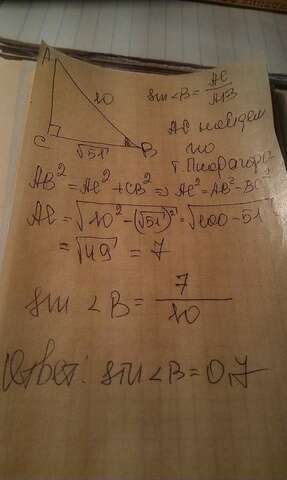 A
10
sin ∠B = AC/AB
C
√51
B
AC найдем
по
т. Пифагора
AB² = AC² + CB² ⇒ AC² = AB² - BC²
AC = √10² - (√51)² = √100 - 51
= √49 = 7
sin ∠B = 7/10
Ответ: sin ∠B = 0,7